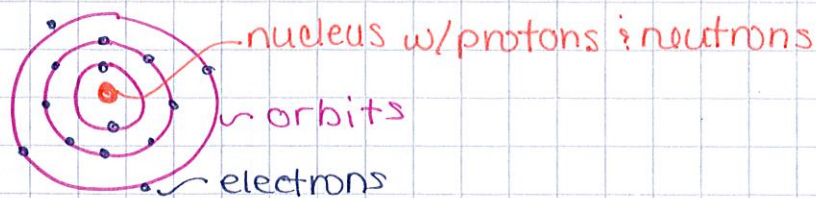 nucleus w/protons & neutrons
orbits
electrons